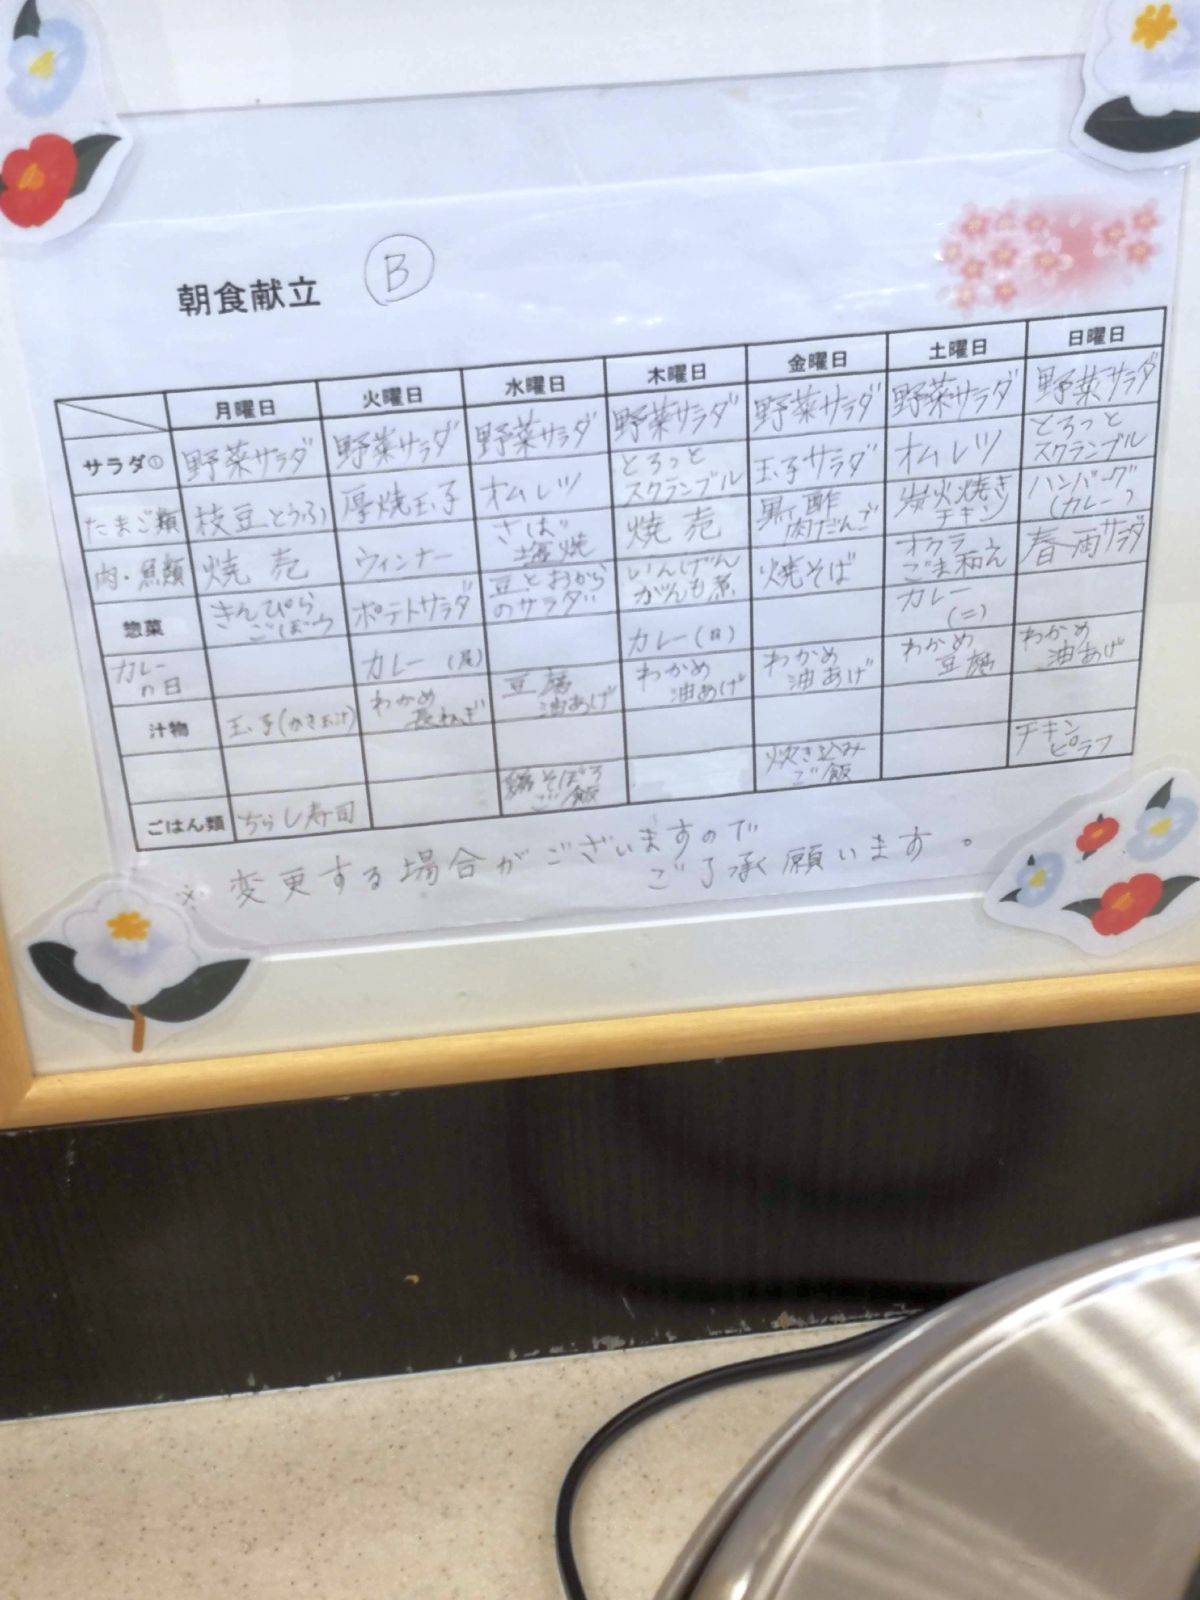 朝食献立 B
月曜日 火曜日 水曜日 木曜日 金曜日 土曜日 日曜日
サラダ① 野菜サラダ 野菜サラダ 野菜サラダ 野菜サラダ 野菜サラダ 野菜サラダ 野菜サラダ
たまご類 枝豆とうふ 厚焼玉子 オムレツ とろっとスクランブル 玉子サラダ オムレツ とろっとスクランブル
肉・魚類 焼売 ウィンナー さば塩焼 焼売 黒酢肉だんご 炭火焼きチキン ハンバーグ(カレー)
惣菜 きんぴらごぼう ポテトサラダ 豆とおからのサラダ いんげんがんも煮 焼そば オクラごま和え 春雨サラダ
カレーの日 カレー カレー(日) カレー(ニ)
汁物 玉子(かきあげ) わかめ長ねぎ 豆腐油あげ わかめ油あげ わかめ油あげ わかめ豆腐 わかめ油あげ
ごはん類 ちらし寿司 鶏そぼろご飯 炊き込みご飯 チキンピラフ
※ 変更する場合がございますので
ご了承願います。